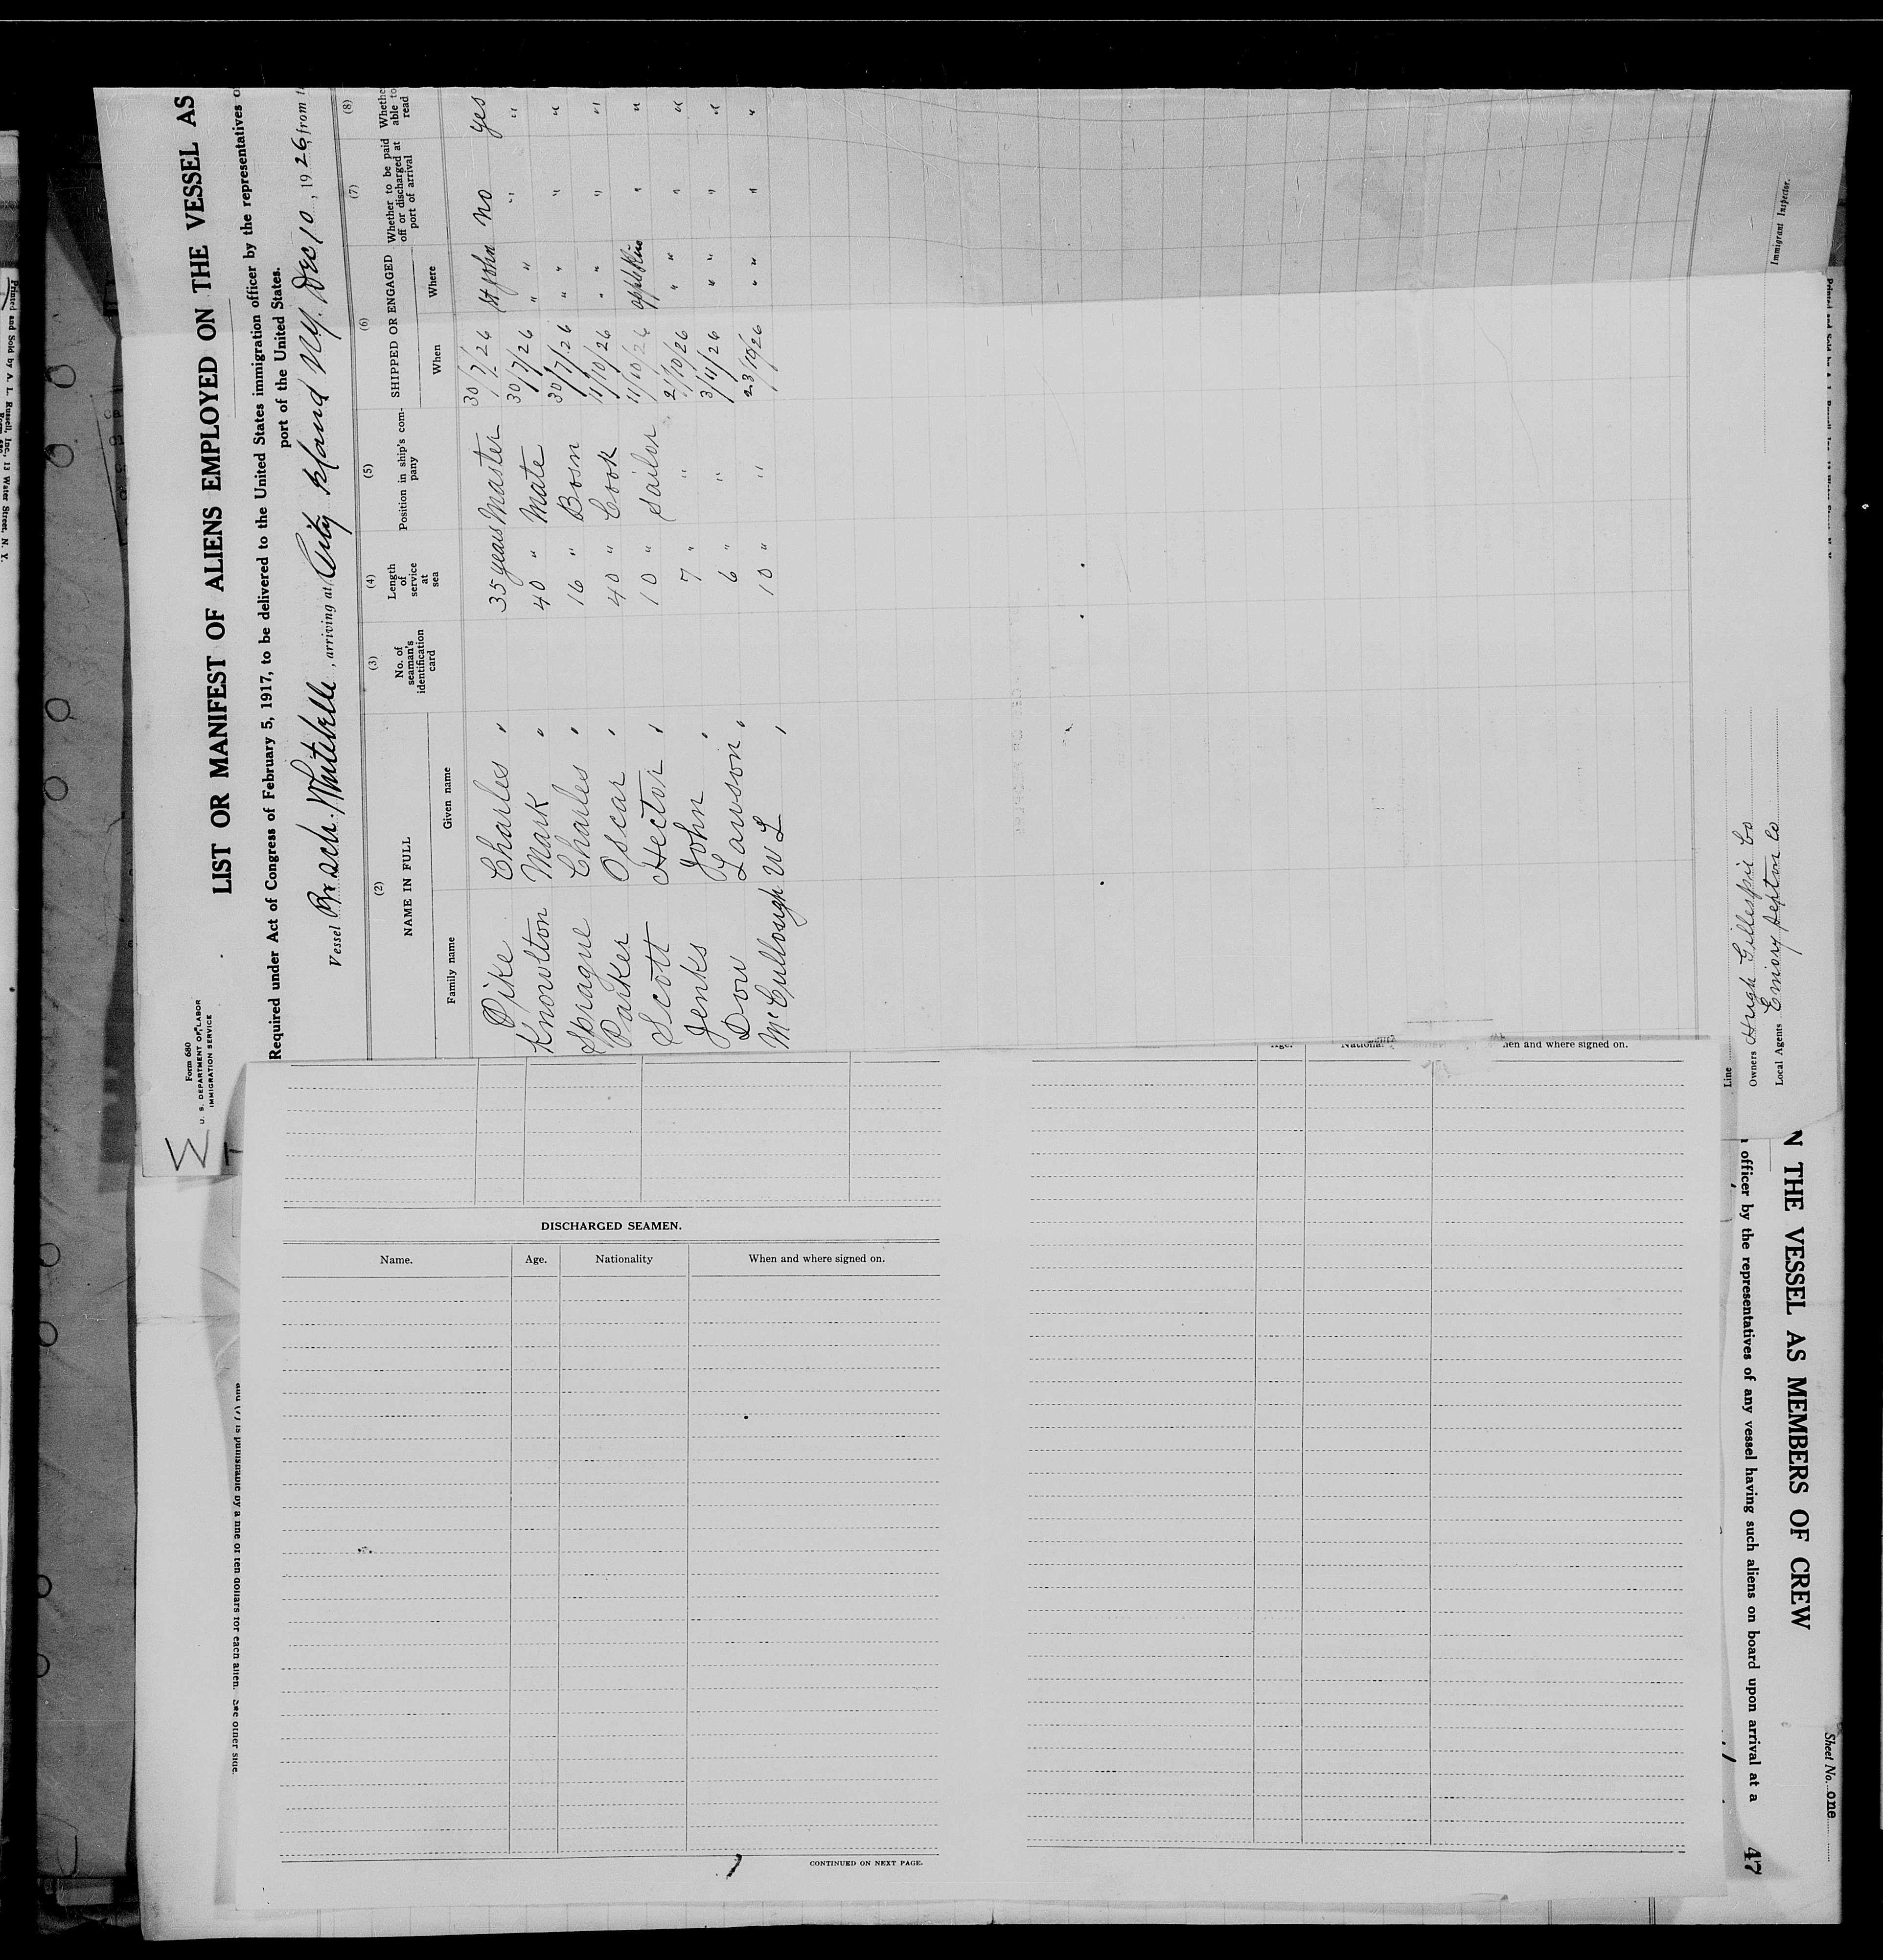 Form 680
U. S. DEPARTMENT OF LABOR
IMMIGRATION SERVICE
LIST OR MANIFEST OF ALIENS EMPLOYED ON THE VESSEL AS
Required under Act of Congress of February 5, 1917, to be delivered to the United States immigration officer by the representatives
port of the United States.
Vessel Br Sch. Whitebelle, arriving at City Island N.Y. Dec 10, 1926, from
(2) (3) (4) (5) (6) (7) (8)
NAME IN FULL No. of seaman's identification card Length of service at sea Position in ship's company SHIPPED OR ENGAGED Whether to be paid off or discharged at port of arrival Whether able to read
Family name Given name When Where
Pike Charles " 35 years Master 30/7/26 St John No yes
Knowlton Mark " 40 " Mate 30/7/26 " " " "
Sprague Charles " 16 " Bosn 30/7/26 " " " "
Parker Oscar " 40 " Cook 11/10/26 " " " "
Scott Hector " 10 " Sailor 11/10/26 " "
Jenks John " 7 " " 2/10/26 " " " "
Dow Lawson " 6 " " 3/11/26 " " " "
McCullough W L " 10 " " 23/10/26 " " " "
Line
Owners Hugh Gillespie Co
Local Agents Co
Immigrant Inspector.
DISCHARGED SEAMEN.
Name. Age. Nationality When and where signed on.
CONTINUED ON NEXT PAGE.
and where signed on.
N THE VESSEL AS MEMBERS OF CREW
officer by the representatives of any vessel having such aliens on board upon arrival at a
Sheet No. one
47
is punishable by a fine of ten dollars for each alien. See other side.
Printed and Sold by A. L. Russell, Inc., 13 Water Street, N. Y.